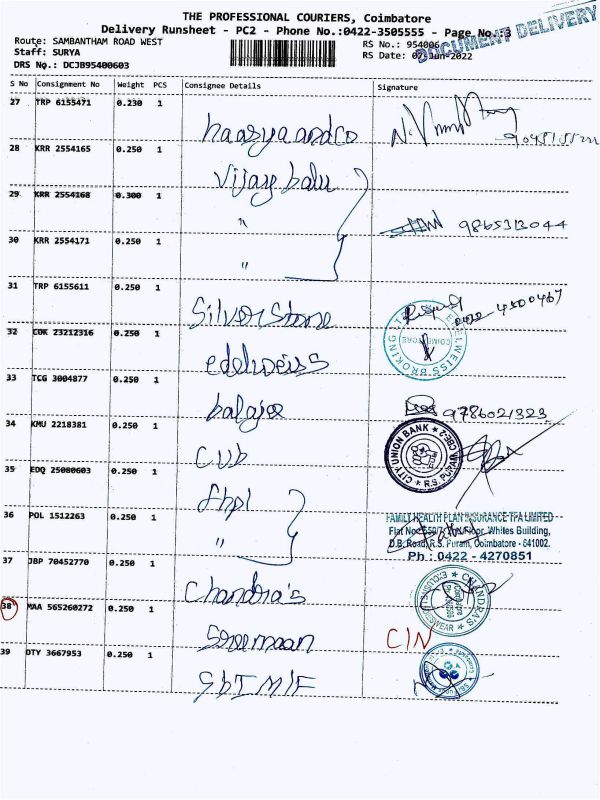 THE PROFESSIONAL COURIERS, Coimbatore
Delivery Runsheet - PC2 - Phone No.:0422-3505555 - Page No.:3
DOCUMENT DELIVERY
Route: SAMBANTHAM ROAD WEST
RS No.: 954006
Staff: SURYA
RS Date: 07-Jun-2022
DRS No.: DCJB95400603
S No Consignment No Weight PCS Consignee Details Signature
27 TRP 6155471 0.230 1
haasya and co
28 KRR 2554165 0.250 1
Vijay balu
29 KRR 2554168 0.300 1
"
9865313044
30 KRR 2554171 0.250 1
"
31 TRP 6155611 0.250 1
Silver Stone
0422-4300467
32 COK 23212316 0.250 1
edelweiss
EDELWEISS BROKING LTD
COIMBATORE
33 TCG 3004877 0.250 1
balajee
9786021323
34 KMU 2218381 0.250 1
CUB
CITY UNION BANK
CBE2
R.S. PURAM
35 EDQ 25080603 0.250 1
fhpl
36 POL 1512263 0.250 1
"
FAMILY HEALTH PLAN INSURANCE TPA LIMITED
Floor, Whites Building,
D.B. Road, R.S. Puram, Coimbatore - 641002.
Ph : 0422 - 4270851
37 JBP 70452770 0.250 1
Chandra's
CHANDRA'S
38 MAA 565260272 0.250 1
Sreemaan
CIN
39 DTY 3667953 0.250 1
SbI M/F